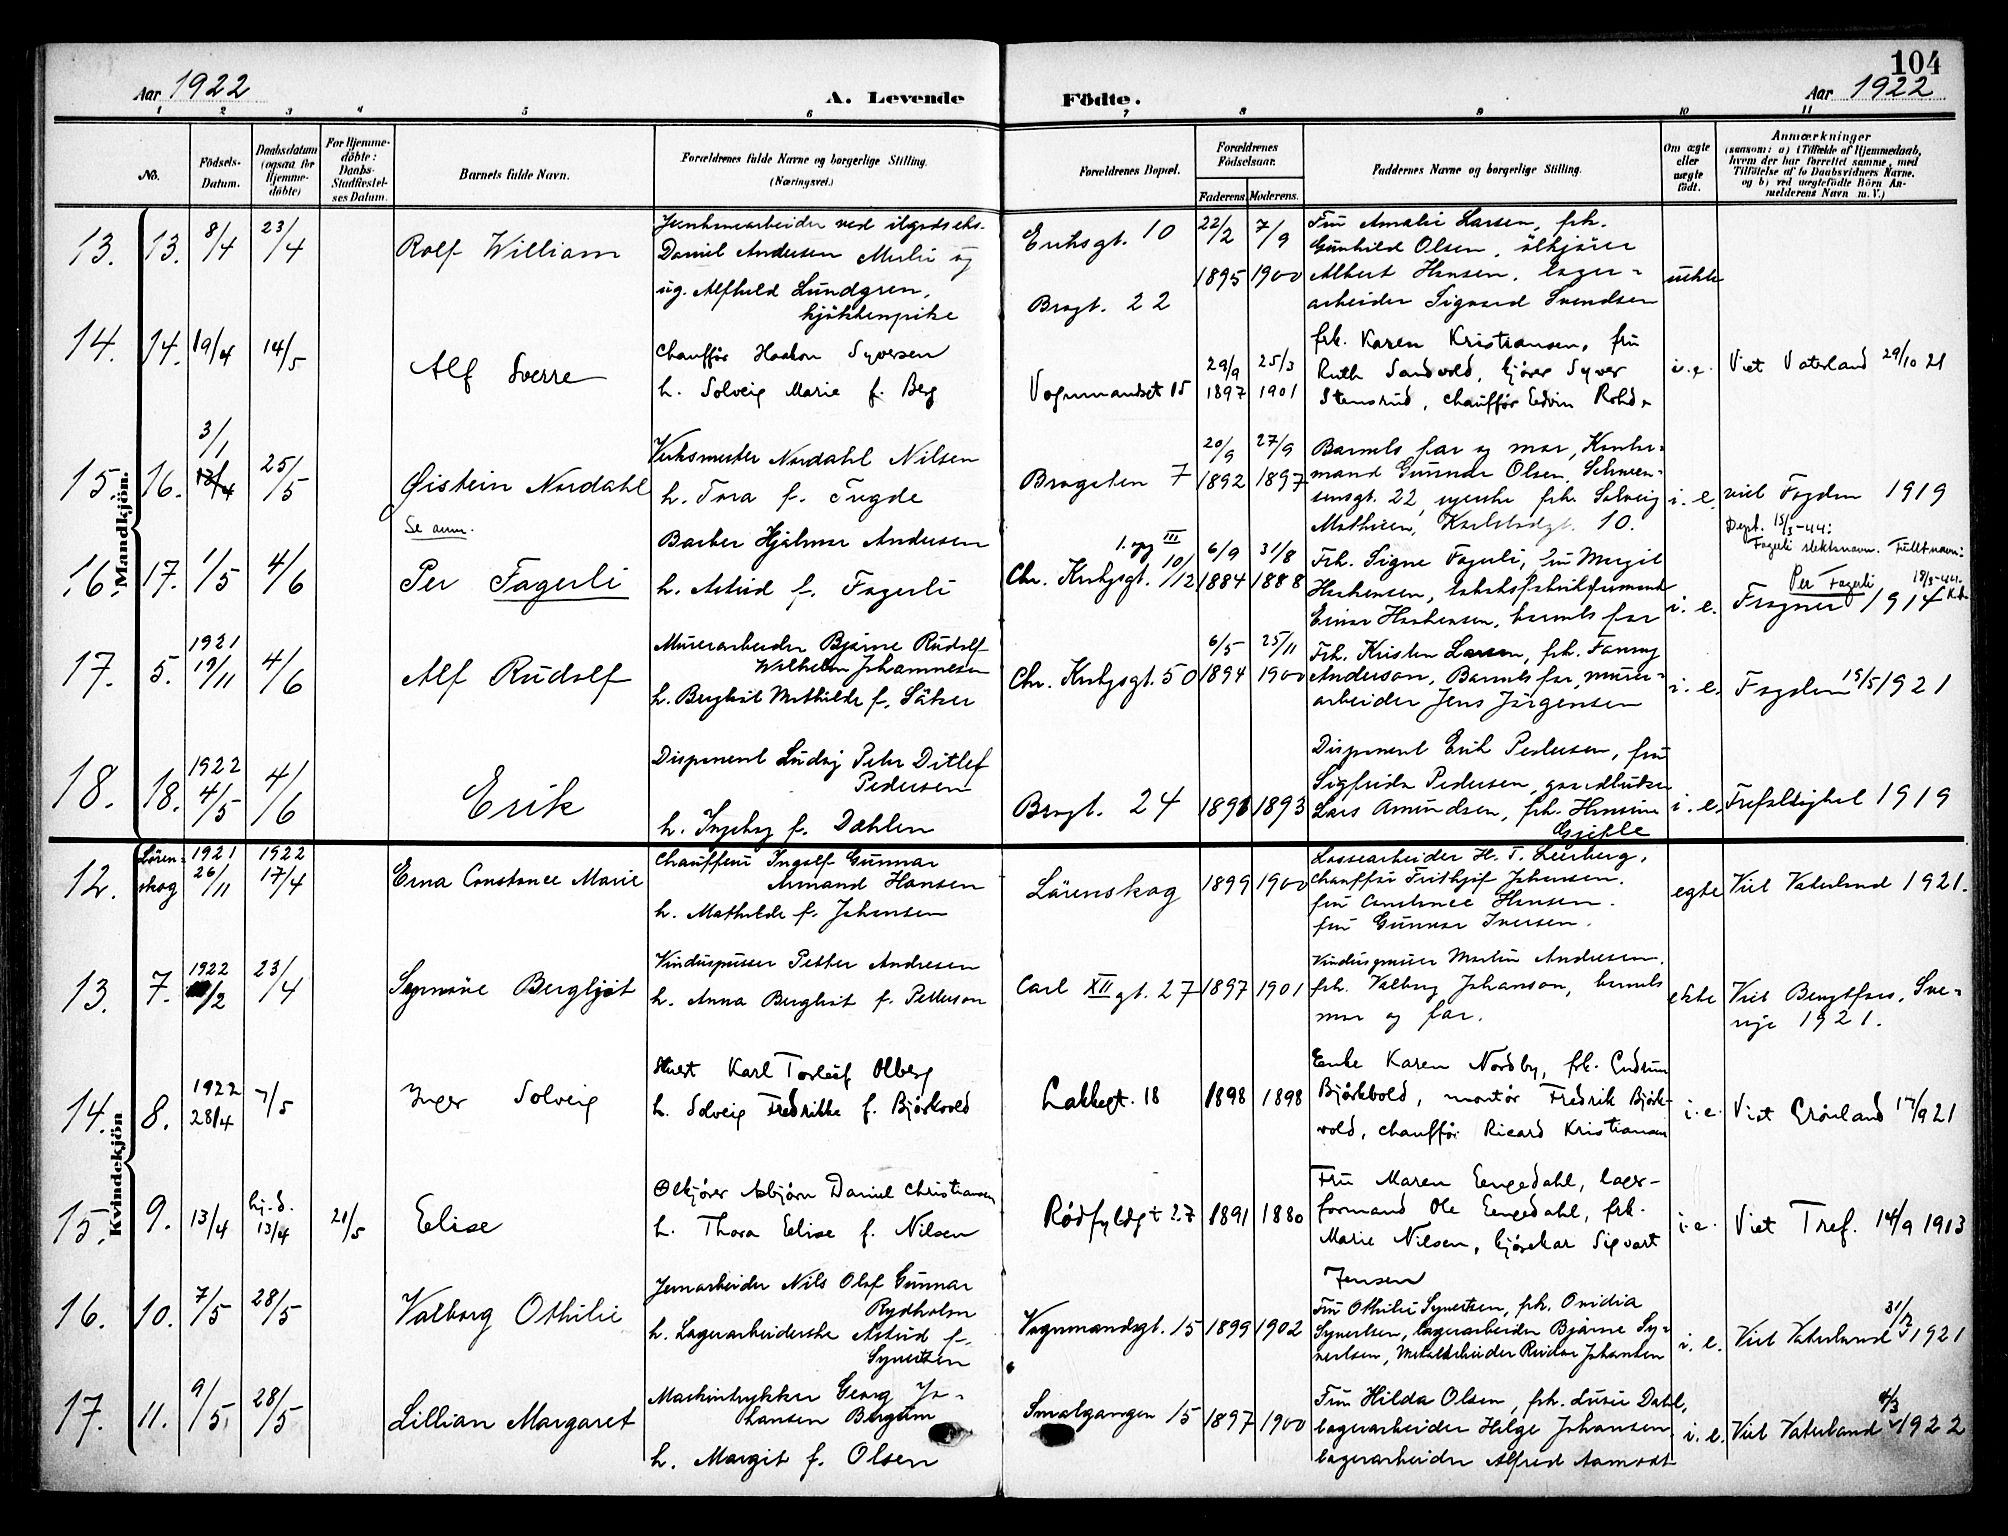 104
Aar 1922
A. Levende
Födte.
Aar 1922
1 2 3 4 5 6 7 8 9 10 11
No.
Födsels-Datum.
Daabsdatum (ogsaa for Hjemme-döbte)
For Hjemme-döbte: Daabs-Stadfæstel-ses Datum.
Barnets fulde Navn.
Forældrenes fulde Navne og borgerlige Stilling. (Næringsvei.)
Forældrenes Bopæl.
Forældrenes Födselsaar.
Faderens. Moderens.
Faddernes Navne og borgerlige Stilling.
Om ægte eller uægte födt.
Anmærkninger
(saasom: a) i Tilfælde af Hjemmedaab,
hvem der har forrettet samme, med
Tilföielse af to Daabsvidners Navne,
og b) ved uægtefödte Börn An-
melderens Navn m. V.)
Mandkjön.
13. 13. 8/4 23/4 Rolf William
Daniel Andersen
ug. Alfhild Lundgren,
kjøkkenpike
Eriksgt. 10
Brogt. 22
22/2 1895 7/9 1900
Fru Amalie Larsen, frk.
Gunhild Olsen, ølkjører
Albert Hansen, lager-
arbeider Sigvard Svendsen
uekte
14. 14. 19/4 14/5 Alf Sverre
Chauffør Haakon Syversen
h. Solveig Marie f. Berg
Vognmandsgt 15
29/9 1897 25/3 1901
frk. Karen Kristiansen, fru
Ruth Sandvold, kjører Syver
Stensrud, chauffør Edvin Rohd.
i.e. Viet Vaterland 29/10 21
15. 16. 3/1 Øistein Nordahl
25/5
Se anm.
Verksmester Nordahl Nilsen
h. Tora f. Fugde
Brogaten 7
20/9 1892 27/9 1897
Barnets far og mor, Kontor-
mand Gunnar Olsen, Schwen-
sensgt. 22, syerske frk. Solveig
Mathisen, Karlstadgt. 10.
i. e. viet Fagden 1919
16. 17. 1/5 4/6 Per Fagerli
Barber Hjalmar Andersen
h. Astrid f. Fagerli
Chr. Krohgsgt. 10/12
6/9 1884 31/8 1888
Frk. Signe Fagerli, fru Margit
Haakensen,
Einar Haakensen, barnets far
i. e.
Dept. 15/3-44:
Fagerli slektsnavn. Fullt navn:
Per Fagerli 15/3-44.
1914
17. 5. 1921 19/11 4/6 Alf Rudolf
Murerarbeider Bjarne Rudolf
Wilhelm Johannesen
h. Bergliot Mathilde f. Säter
Chr. Krohgsgt. 50
6/5 1894 25/11 1900
Frk. Kristen Larsen, frk. Fanny
Anderson, Barnets far, murer-
arbeider Jens Jörgensen
i. e. Fagden 15/5 1921
18. 18. 1922 4/5 4/6 Erik
Disponent Ludvig Peter Ditlef
Pedersen
h. Ingeborg f. Dahlen
Brogt. 24
1893
Disponent Erik Pedersen, fru
Sigfrida Pedersen, gaardbruker
Lars Amundsen, frk. Hansine
Gjefle
i. e. Trefoldighet 1919
Kvindekjön
12. Lören-skog 1921 26/11 1922 17/4 Erna Constance Marie
Chauffeur Ingolf Gunnar
Armand Hansen
h. Mathilde f. Johansen
Lörenskog
1899 1900
Lossearbeider H. T. Leerberg,
Chauffør Frithjof Johansen.
fru Constance Hansen.
fru Gunnar Iversen.
egte Viet Vaterland 1921.
13. 7. 1922 23/4 Synnöve Bergljot
Vinduspusser Petter Andresen
h. Anna Bergliot f. Petterson
Carl XII gt. 27
1897 1901
Vinduspusser Martin Andresen.
frk. Valborg Johanson, barnets
mor og far.
ekte Viet Bengtfors, Sve-
rige 1921.
14. 8. 1922 28/4 7/5 Inger Solveig
Stuert Karl Torleif Olberg
h. Solveig Fredrikke f. Bjørkvold
Lakkegt. 18
1898 1898
Enke Karen Nordby, frk. Gudrun
Bjørkvold, montør Fredrik Bjørk-
vold, chauffør Ricard Kristiansen
i.e. Viet Grønland 17/9 21
15. 9. 13/4 hj.d. 13/4 21/5 Elise
Ølkjører Asbjørn Daniel Christiansen
h. Thora Elise f. Nilsen
Rødfyldgt 27
1891 1880
Fru Maren Engedahl, lager-
formand Ole Engedahl, frk.
Marie Nilsen, kjørekar Sigvart
Jensen
i.e. Viet Tref. 14/9 1913
16. 10. 7/5 28/5 Valborg Othilie
Jernarbeider Nils Olof Gunnar
Rydholm
h. Lagerarbeiderske Astrid f.
Syvertsen
Vognmandsgt. 15
1899 1902
Fru Othilie Syvertsen, frk. Ovidia
Syvertsen, lagerarbeider Bjarne Sy-
vertsen, Metalarbeider Reidar Johansen
i. e. Viet Vaterland 1921
17. 11. 9/5. 28/5 Lillian Margaret
Maskintrykker Georg Jo-
hansen Bergum
h. Margit f. Olsen
Smalgangen 15
1897 1900
Fru Hilda Olsen, frk. Lusie Dahl,
lagerarbeider Helge Johansen
lagerarbeider Alfred Aamodt
i. e. Viet Vaterland 4/3 1922